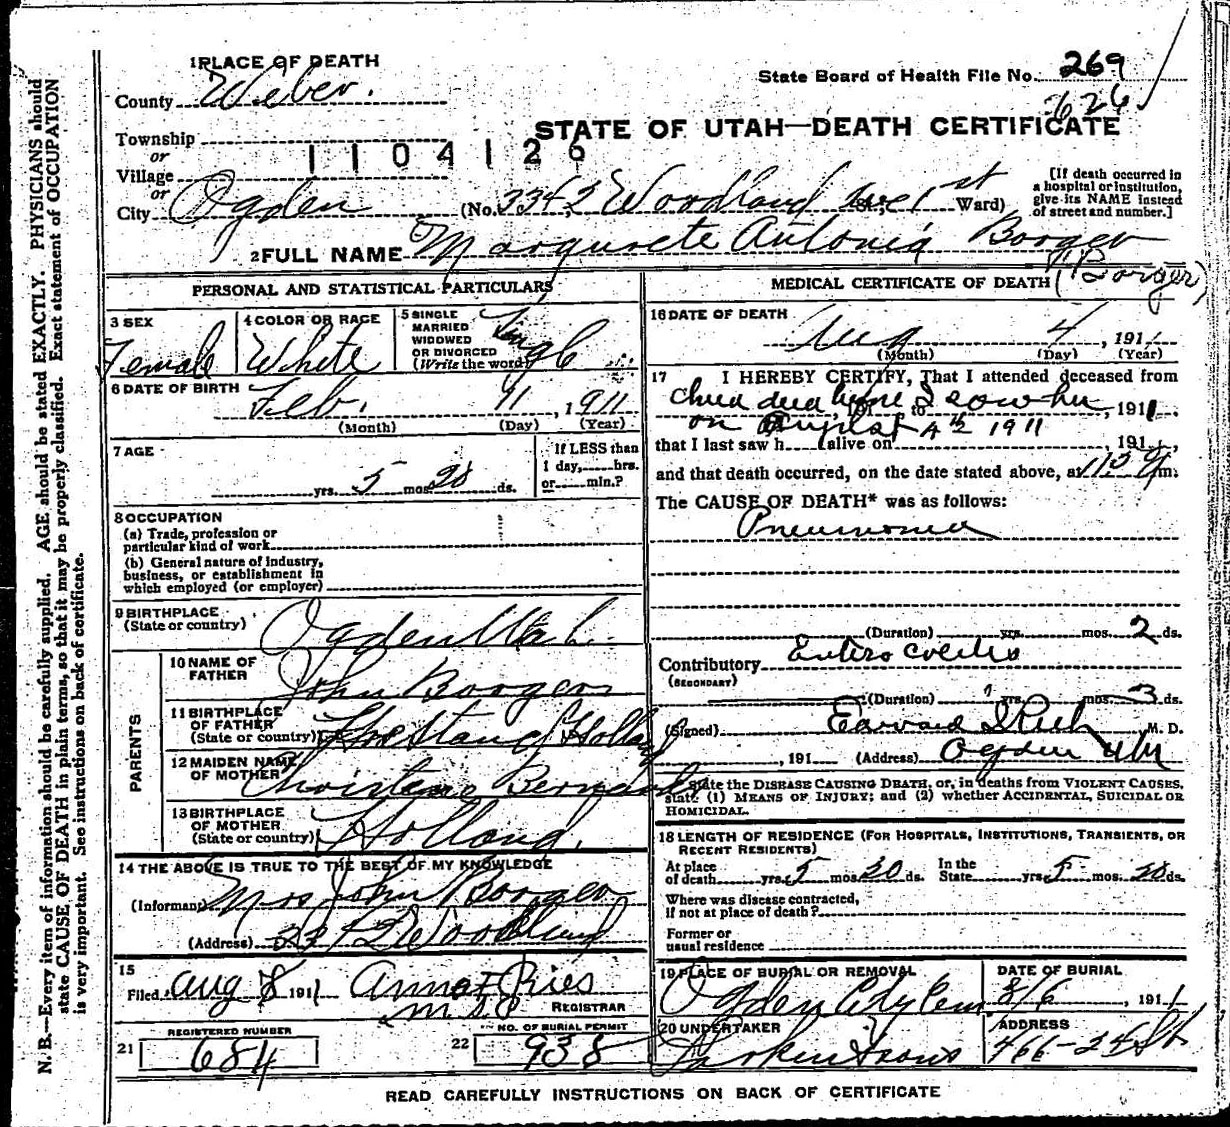 1 PLACE OF DEATH
County Weber.
State Board of Health File No. 269
626
STATE OF UTAH—DEATH CERTIFICATE
Township
or
1104126
Village
or
City Ogden (No. 3342 Woodland Ave St; 1st Ward)
[If death occurred in
a hospital or institution,
give its NAME instead
of street and number.]
2 FULL NAME Margurete Antonia Borger
(Borger)
PERSONAL AND STATISTICAL PARTICULARS
3 SEX
Female
4 COLOR OR RACE
White
5 SINGLE
MARRIED
WIDOWED
OR DIVORCED
(Write the word)
Single
6 DATE OF BIRTH
Feb. 11, 1911
(Month) (Day) (Year)
7 AGE
yrs. 5 mos. 28 ds.
If LESS than
1 day, hrs.
or min.?
8 OCCUPATION
(a) Trade, profession or
particular kind of work
(b) General nature of industry,
business, or establishment in
which employed (or employer)
9 BIRTHPLACE
(State or country)
Ogden Utah
PARENTS
10 NAME OF
FATHER
John Borger
11 BIRTHPLACE
OF FATHER
(State or country)
Holland
12 MAIDEN NAME
OF MOTHER
13 BIRTHPLACE
OF MOTHER
(State or country)
Holland.
14 THE ABOVE IS TRUE TO THE BEST OF MY KNOWLEDGE
(Informant) Mrs John Borger
(Address) 3342 Woodland
15
Filed Aug 8 1911 Anna F Ries
REGISTRAR
REGISTERED NUMBER
21 684
NO. OF BURIAL PERMIT
22 938
MEDICAL CERTIFICATE OF DEATH
16 DATE OF DEATH
Aug 4, 1911
(Month) (Day) (Year)
17 I HEREBY CERTIFY, That I attended deceased from
child dead when I saw her, 191 to, 1911.
on August 4th 1911
that I last saw h alive on, 191,
and that death occurred, on the date stated above, at m.
The CAUSE OF DEATH* was as follows:
Pneumonia
(Duration) yrs. mos. 2 ds.
Contributory Entero colitis
(SECONDARY)
(Duration) yrs. mos. 3 ds.
(Signed) Edward I Rich M. D.
, 191 (Address) Ogden Utah
State the DISEASE CAUSING DEATH, or, in deaths from VIOLENT CAUSES,
state (1) MEANS OF INJURY; and (2) whether ACCIDENTAL, SUICIDAL OR
HOMICIDAL.
18 LENGTH OF RESIDENCE (FOR HOSPITALS, INSTITUTIONS, TRANSIENTS, OR
RECENT RESIDENTS)
At place
of death yrs. 5 mos. 20 ds.
In the
State yrs. 5 mos. 28 ds.
Where was disease contracted,
if not at place of death?
Former or
usual residence
19 PLACE OF BURIAL OR REMOVAL
Ogden City Cem
DATE OF BURIAL
8/6, 1911
20 UNDERTAKER
Larkin & Sons
ADDRESS
466-24 St
READ CAREFULLY INSTRUCTIONS ON BACK OF CERTIFICATE
N. B.—Every item of information should be carefully supplied. AGE should be stated EXACTLY. PHYSICIANS should
state CAUSE OF DEATH in plain terms, so that it may be properly classified. Exact statement of OCCUPATION
is very important. See instructions on back of certificate.